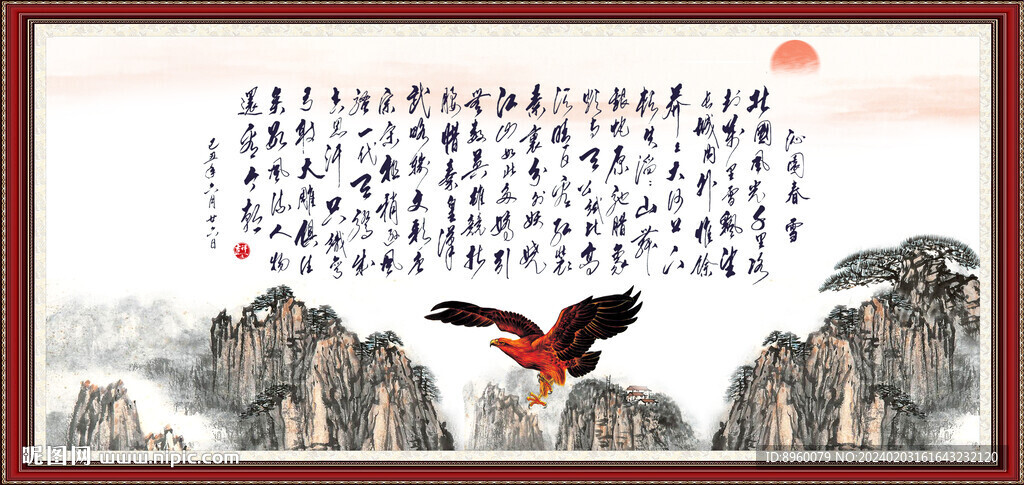 沁園春 雪
北國風光千里冰
封萬里雪飄望
长城内外惟餘
莽々大河上下
頓失滔々山舞
銀蛇原馳腊象
欲与天公試比高
須晴日看红装
素裹分外妖嬈
江山如此多嬌引
無數英雄競折
腰惜秦皇漢
武略輸文彩唐
宗宋祖稍遜風
騷一代天驕成
吉思汗只識彎
弓射大雕俱往
矣數風流人物
還看今朝
己丑年六月廿六日
昵图网 www.nipic.com
ID:8960079 NO:20240203161643232120